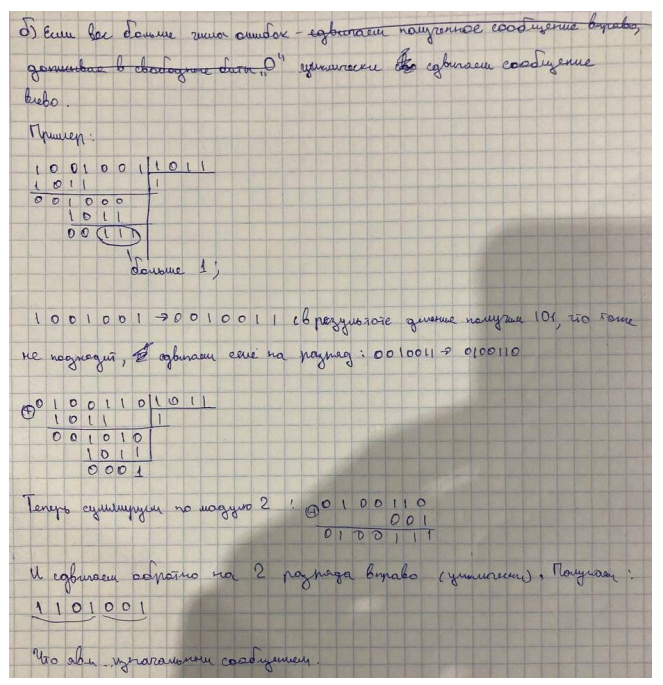 б) Если вес больше числа ошибок - сдвигаем полученное сообщение вправо,
дописывая в свободные биты „0“ циклически сдвигаем сообщение
влево.
Пример:
1001001 | 1011
1011 1
001000
1011
00111
больше 1;
1001001 → 0010011 (в результате деления получим 101, что тоже
не подходит, сдвигаем ещё на разряд: 0010011 → 0100110
⊕ 0100110 | 1011
1011 1
001010
1011
0001
Теперь суммируем по модулю 2 : ⊕ 0100110
001
0100111
И сдвигаем обратно на 2 разряда вправо (циклически). Получаем:
1101001
Что явл. изначальным сообщением.